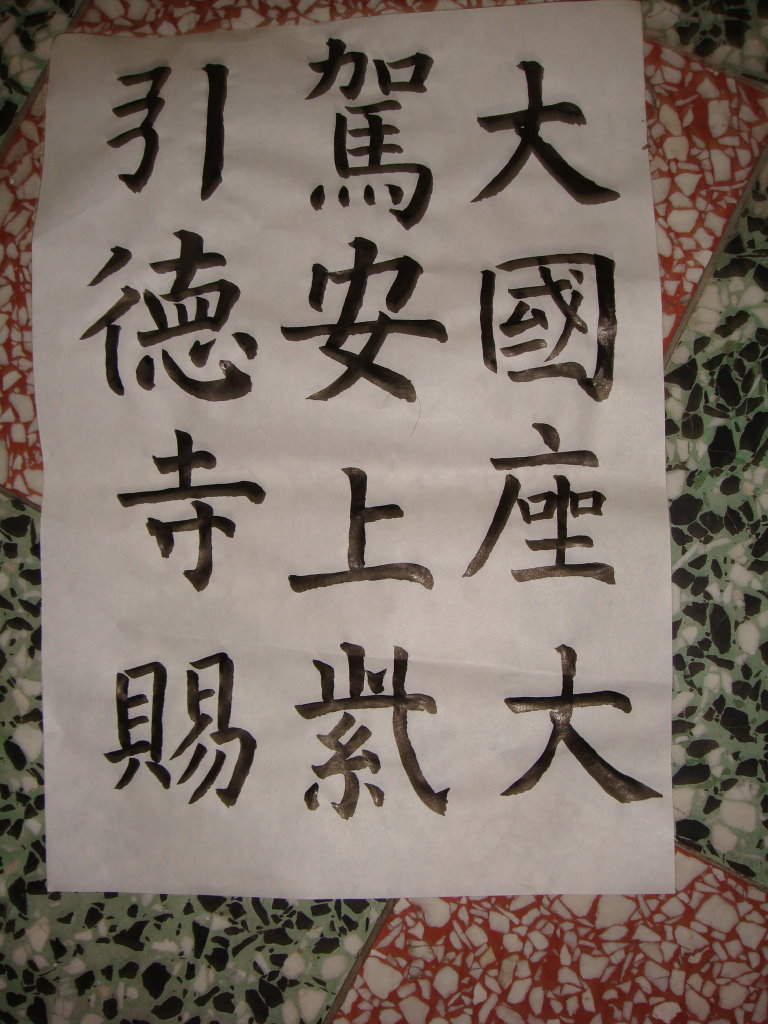 引駕大
德安國
寺上座
賜紫大